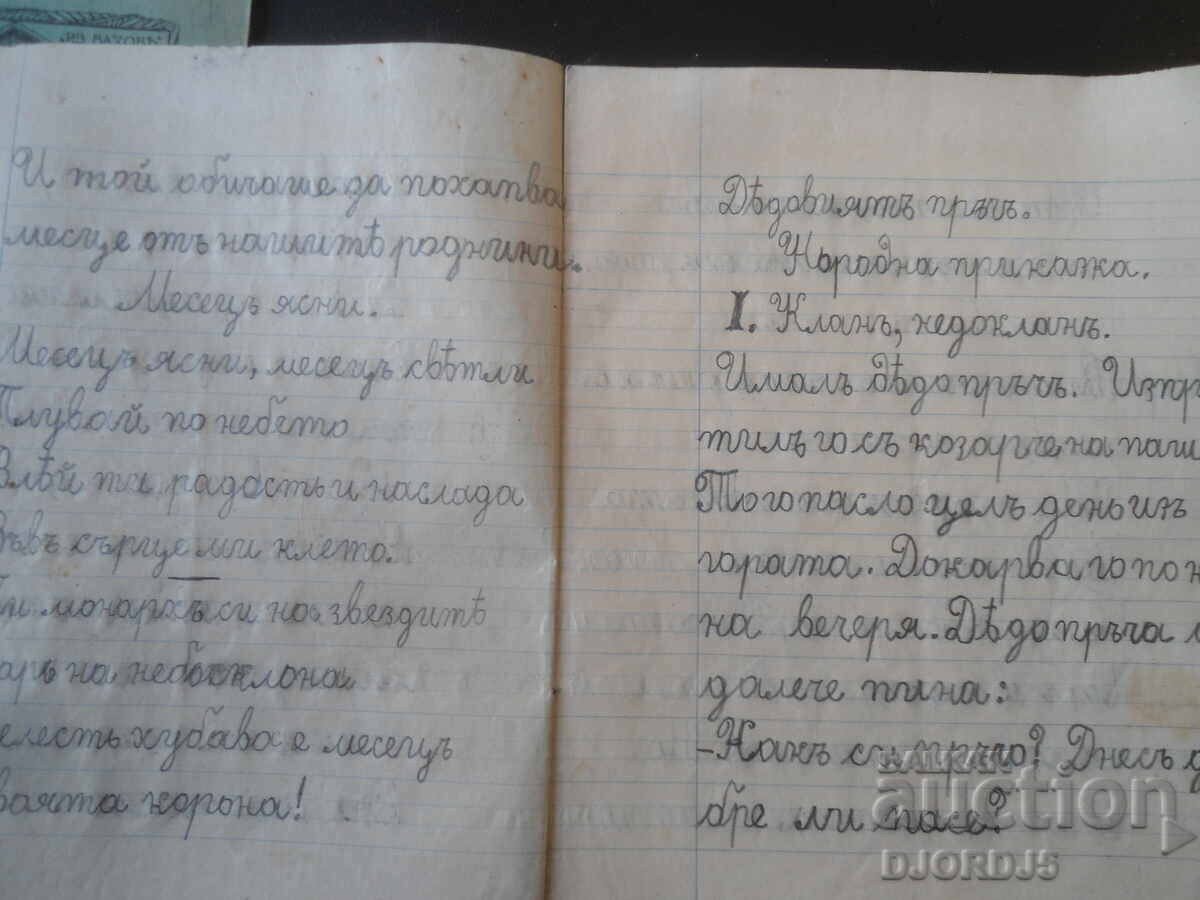 И той обичаше да похапва
месце отъ нашитѣ роднини.
Месецъ ясни.
Месецъ ясни, месецъ свѣтли
Плувай по небето
Влѣй ти радость и наслада
Въвъ сърце ми клето.
Ти монархъ си на звездитѣ
на небосклона
хубава е месецъ
корона!
Дѣдовиятъ пръчъ.
Народна приказка.
I. Кланъ, недокланъ.
Ималъ дѣдо пръчъ. Изпра
тилъ го съ козарче на паш
То го пасло целъ день изъ
гората. Докарва го по
на вечеря. Дѣдо пръча
далече пина:
-Какъ си пръчо? Днесъ д
бре ли пасе?
BALKAN
auction
DJORDJ5